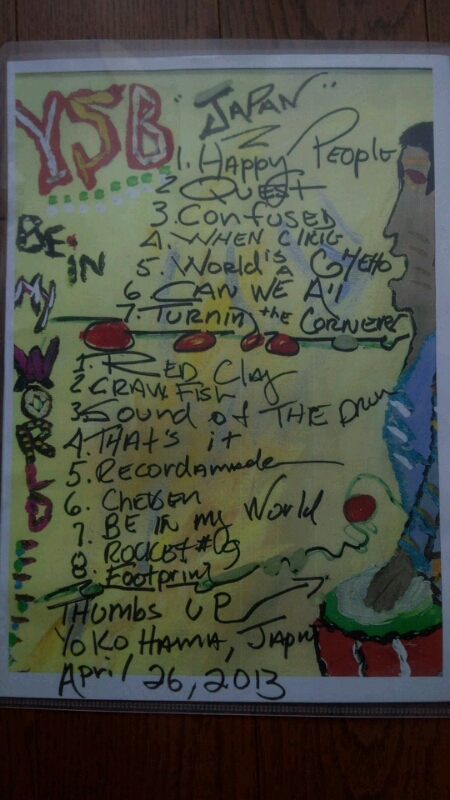 YSB "JAPAN"
1. HAPPY PEOPLE
2 QUEST
3. CONFUSED
4. WHEN
5. WORLD is A GHETTO
6 CAN WE All
7. TURNING the CORNER
BE IN MY WORLD
1. RED Clay
2 CRAWFISH
3 Sound of THE Drum
4. THAT'S it
5. RECORDAME
6. CHEESEN
7. BE IN my World
8. ROCKET #9
8. Footprint
THUMBS UP
YOKOHAMA, JAPAN
April 26, 2013